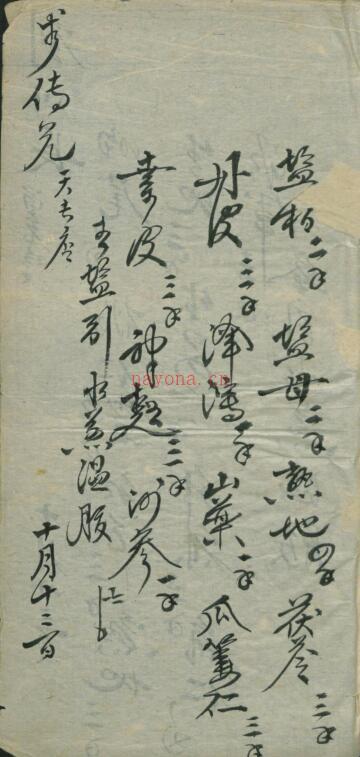 盐柏二钱 盐母二钱 熟地四钱 茯苓三钱
丹皮三钱 泽泻钱 山药钱 瓜蒌仁三钱
皮三钱 神麯三钱 沙参钱
盐引 水煎温服
十月十三日
传
nayona.cn